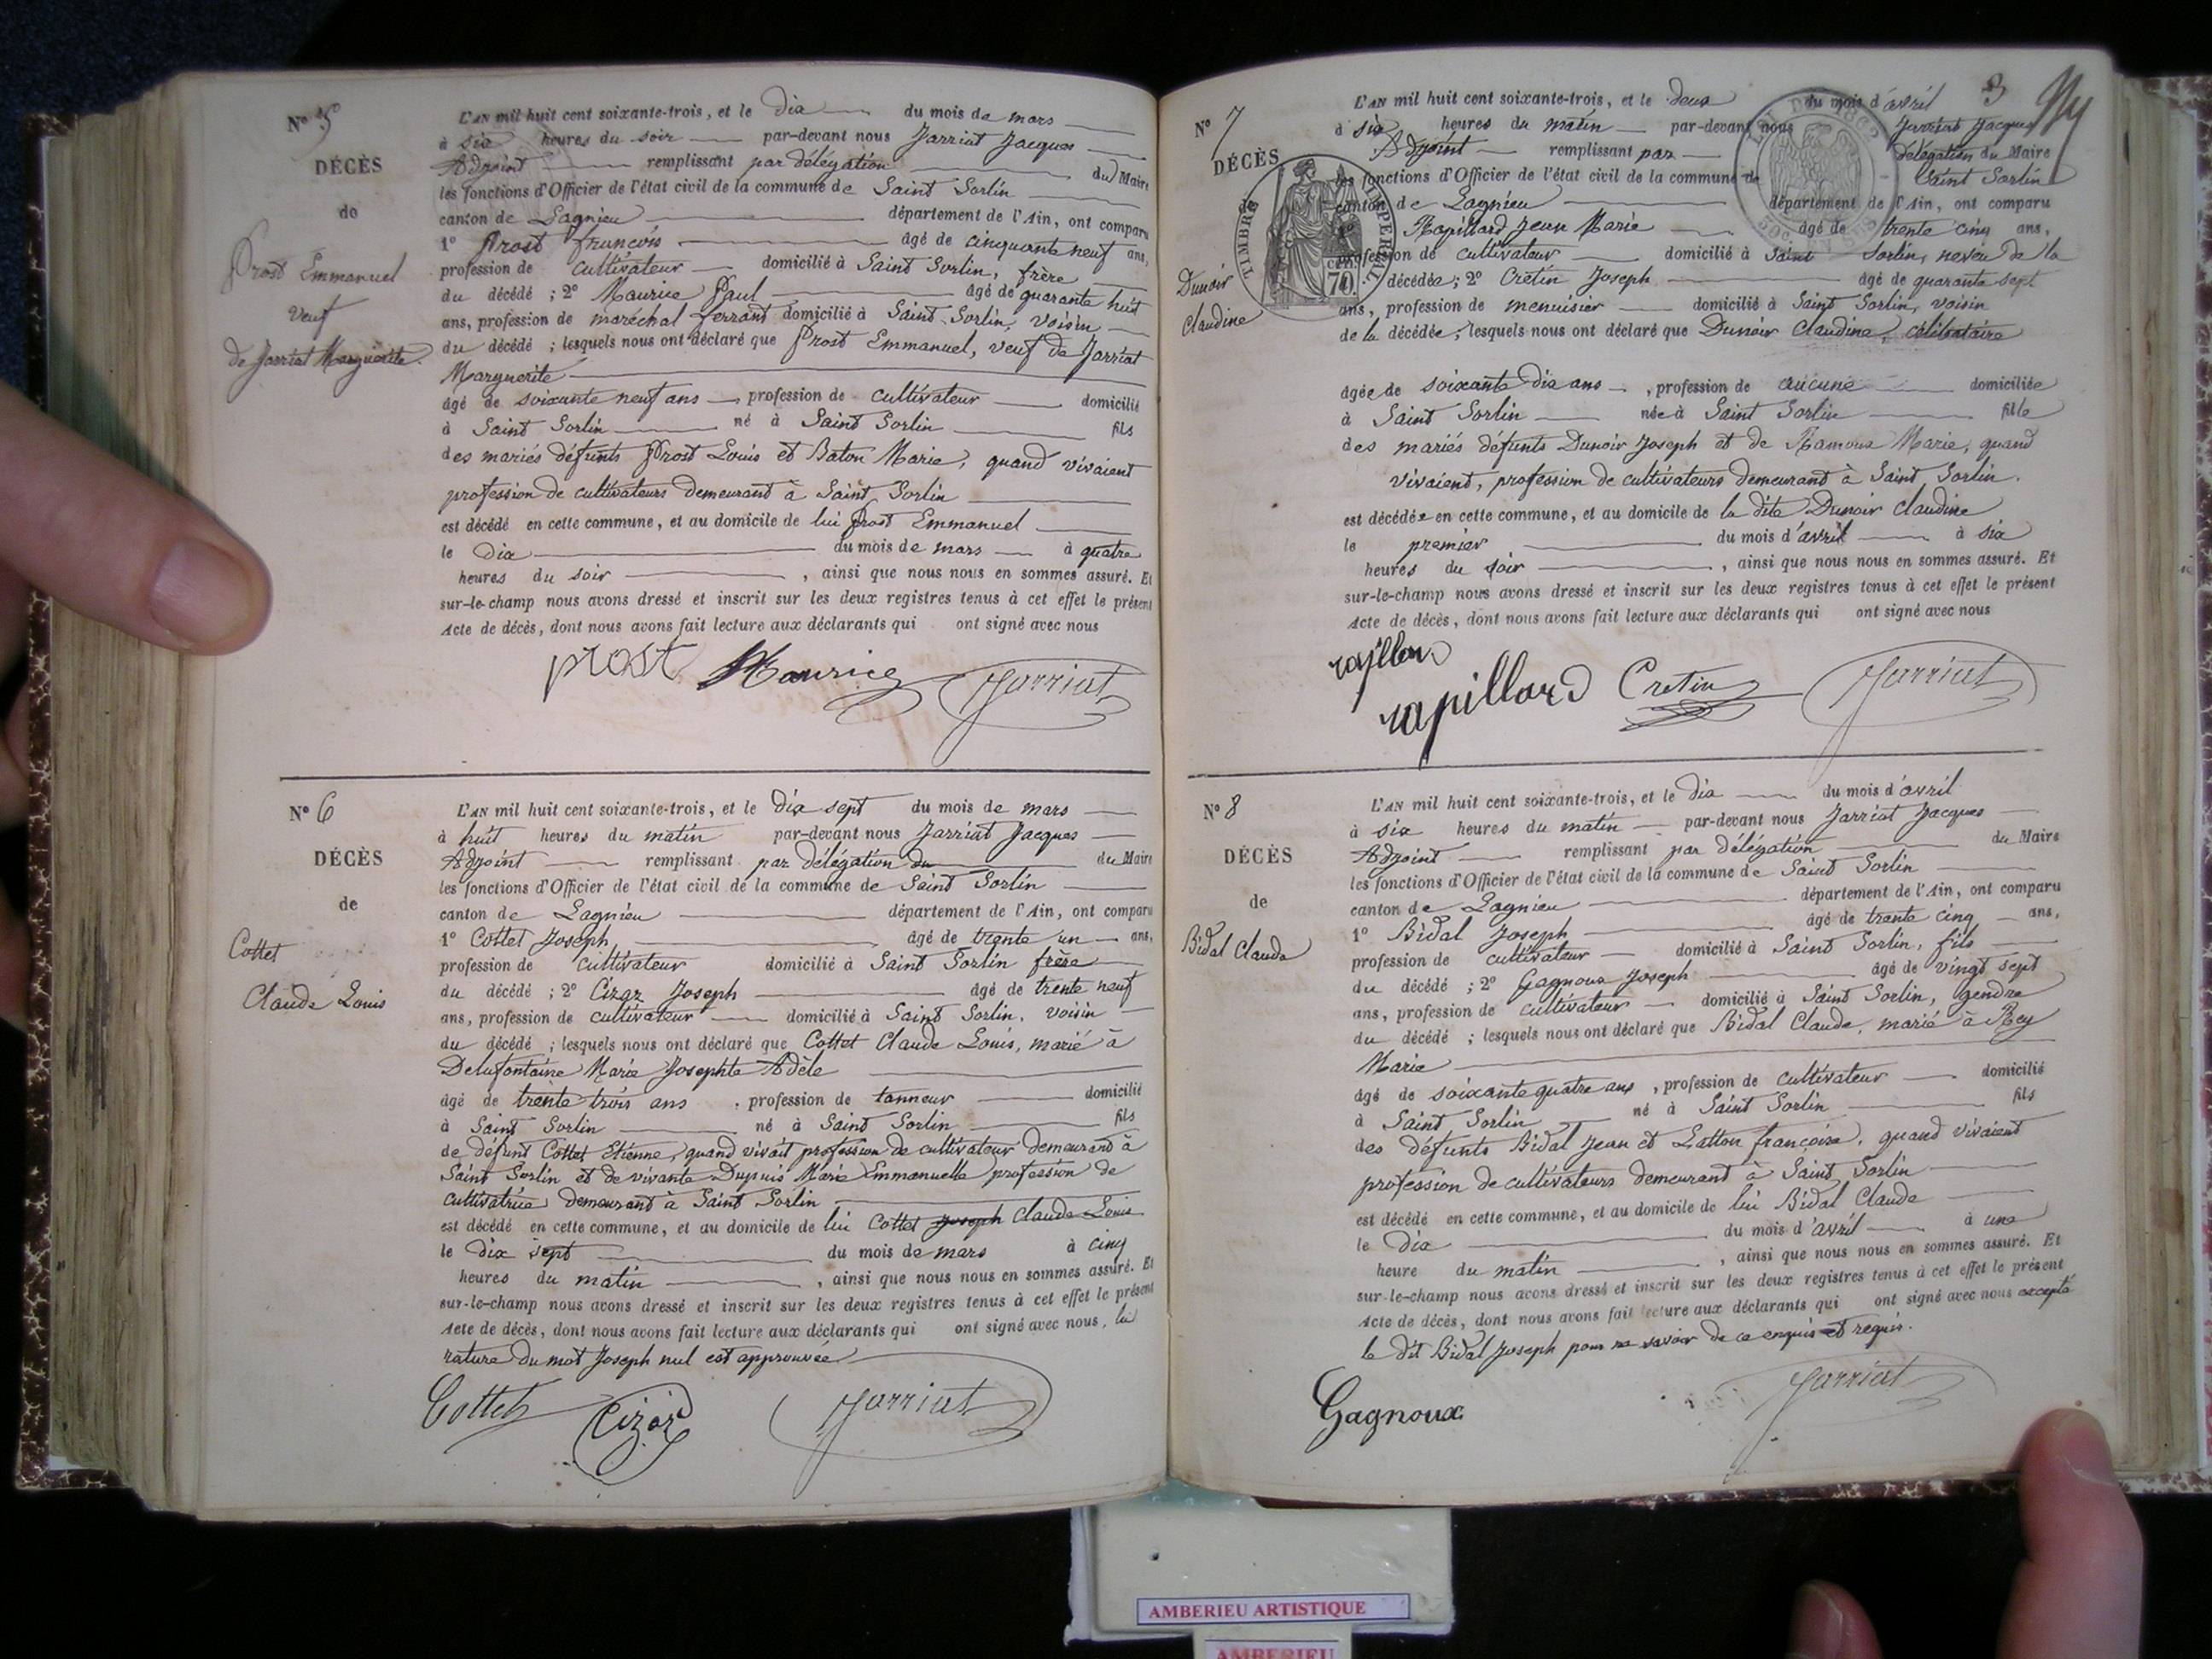 N° 5
DÉCÈS
de
Prost Emmanuel
veuf
de Jarriat Marguerite
L'AN mil huit cent soixante-trois, et le dix du mois de mars
à six heures du soir par-devant nous Jarriat Jacques
Adjoint remplissant par délégation du Maire
les fonctions d'Officier de l'état civil de la commune de Saint Sorlin
canton de Lagnieu département de l'Ain, ont comparu
1° Prost françois âgé de cinquante neuf ans,
profession de cultivateur domicilié à Saint Sorlin, frère
du décédé ; 2° Maurice Paul âgé de quarante huit
ans, profession de maréchal ferrant domicilié à Saint Sorlin, voisin
du décédé ; lesquels nous ont déclaré que Prost Emmanuel, veuf de Jarriat
Marguerite
âgé de soixante neuf ans, profession de cultivateur domicilié
à Saint Sorlin né à Saint Sorlin fils
des mariés défunts Prost Louis et Baton Marie, quand vivaient
profession de cultivateurs demeurant à Saint Sorlin
est décédé en cette commune, et au domicile de lui Prost Emmanuel
le dix du mois de mars à quatre
heures du soir, ainsi que nous nous en sommes assuré. Et
sur-le-champ nous avons dressé et inscrit sur les deux registres tenus à cet effet le présent
Acte de décès, dont nous avons fait lecture aux déclarants qui ont signé avec nous
prost Maurice Jarriat
N° 6
DÉCÈS
de
Cottet
Claude Louis
L'AN mil huit cent soixante-trois, et le dix sept du mois de mars
à huit heures du matin par-devant nous Jarriat Jacques
Adjoint remplissant par délégation du du Maire
les fonctions d'Officier de l'état civil de la commune de Saint Sorlin
canton de Lagnieu département de l'Ain, ont comparu
1° Cottet Joseph âgé de trente un ans,
profession de cultivateur domicilié à Saint Sorlin frère
du décédé ; 2° Cizaz Joseph âgé de trente neuf
ans, profession de cultivateur domicilié à Saint Sorlin, voisin
du décédé ; lesquels nous ont déclaré que Cottet Claude Louis, marié à
Delafontaine Marie Josephte Adèle
âgé de trente trois ans, profession de tanneur domicilié
à Saint Sorlin né à Saint Sorlin fils
de défunt Cottet Etienne, quand vivait profession de cultivateur demeurant à
Saint Sorlin et de vivante Dupuis Marie Emmanuelle profession de
cultivatrice demeurant à Saint Sorlin
est décédé en cette commune, et au domicile de lui Cottet Joseph Claude Louis
le dix sept du mois de mars à cinq
heures du matin, ainsi que nous nous en sommes assuré. Et
sur-le-champ nous avons dressé et inscrit sur les deux registres tenus à cet effet le présent
Acte de décès, dont nous avons fait lecture aux déclarants qui ont signé avec nous, la
rature du mot Joseph nul est approuvée
Cottet Cizaz Jarriat
3
N° 7
DÉCÈS
de
Dunoir
Claudine
TIMBRE IMPERIAL
70
L'AN mil huit cent soixante-trois, et le deux du mois d'avril
à six heures du matin par-devant nous Jarriat Jacques
Adjoint remplissant par délégation du Maire
les fonctions d'Officier de l'état civil de la commune de Saint Sorlin
canton de Lagnieu département de l'Ain, ont comparu
1° Rapillard Jean Marie âgé de trente cinq ans,
profession de cultivateur domicilié à Saint Sorlin, neveu de la
décédée ; 2° Cretin Joseph âgé de quarante sept
ans, profession de menuisier domicilié à Saint Sorlin, voisin
de la décédée ; lesquels nous ont déclaré que Dunoir Claudine, célibataire
âgée de soixante dix ans, profession de aucune domiciliée
à Saint Sorlin née à Saint Sorlin fille
des mariés défunts Dunoir Joseph et de Ramoux Marie, quand
vivaient, profession de cultivateurs demeurant à Saint Sorlin.
est décédée en cette commune, et au domicile de la dite Dunoir Claudine
le premier du mois d'avril à six
heures du soir, ainsi que nous nous en sommes assuré. Et
sur-le-champ nous avons dressé et inscrit sur les deux registres tenus à cet effet le présent
Acte de décès, dont nous avons fait lecture aux déclarants qui ont signé avec nous
rapillard Cretin Jarriat
N° 8
DÉCÈS
de
Bidal Claude
L'AN mil huit cent soixante-trois, et le dix du mois d'avril
à six heures du matin par-devant nous Jarriat Jacques
Adjoint remplissant par délégation du Maire
les fonctions d'Officier de l'état civil de la commune de Saint Sorlin
canton de Lagnieu département de l'Ain, ont comparu
1° Bidal Joseph âgé de trente cinq ans,
profession de cultivateur domicilié à Saint Sorlin, fils
du décédé ; 2° Gagnoux Joseph âgé de vingt sept
ans, profession de cultivateur domicilié à Saint Sorlin, gendre
du décédé ; lesquels nous ont déclaré que Bidal Claude, marié à Rey
Marie
âgé de soixante quatre ans, profession de cultivateur domicilié
à Saint Sorlin né à Saint Sorlin fils
des défunts Bidal Jean et Latton françoise, quand vivaient
profession de cultivateurs demeurant à Saint Sorlin
est décédé en cette commune, et au domicile de lui Bidal Claude
le dix du mois d'avril à une
heure du matin, ainsi que nous nous en sommes assuré. Et
sur-le-champ nous avons dressé et inscrit sur les deux registres tenus à cet effet le présent
Acte de décès, dont nous avons fait lecture aux déclarants qui ont signé avec nous excepté
le dit Bidal Joseph pour ne savoir de ce enquis et requis.
Gagnoux Jarriat
AMBERIEU ARTISTIQUE
AMBERIEU